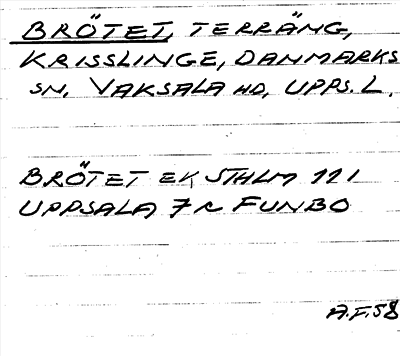 BRÖTET, TERRÄNG,
KRISSLINGE, DANMARKS
SN, VAKSALA HD, UPPS. L.
BRÖTET EK STHLM 111
UPPSALA 7 N FUNBO
A.F. 58